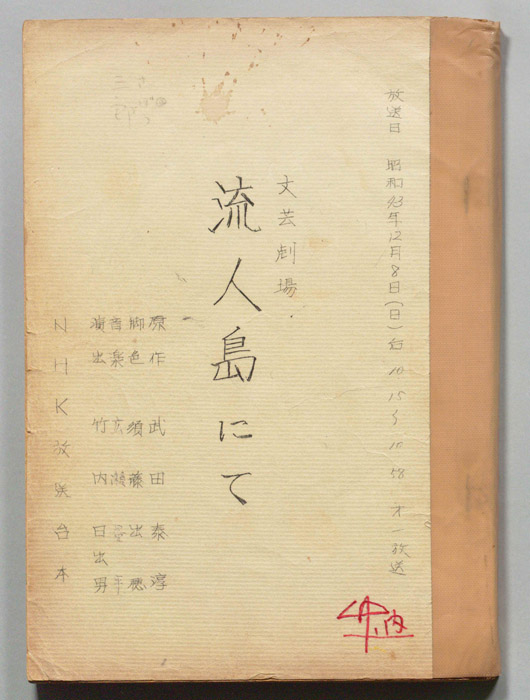 放送日 昭和43年12月8日(日)后10.15〜10.58 才一放送
文芸劇場
流人島にて
原作 武田泰淳
脚色 須藤出穂
音楽 広瀬量平
演出 竹内日出男
NHK放送台本
竹内